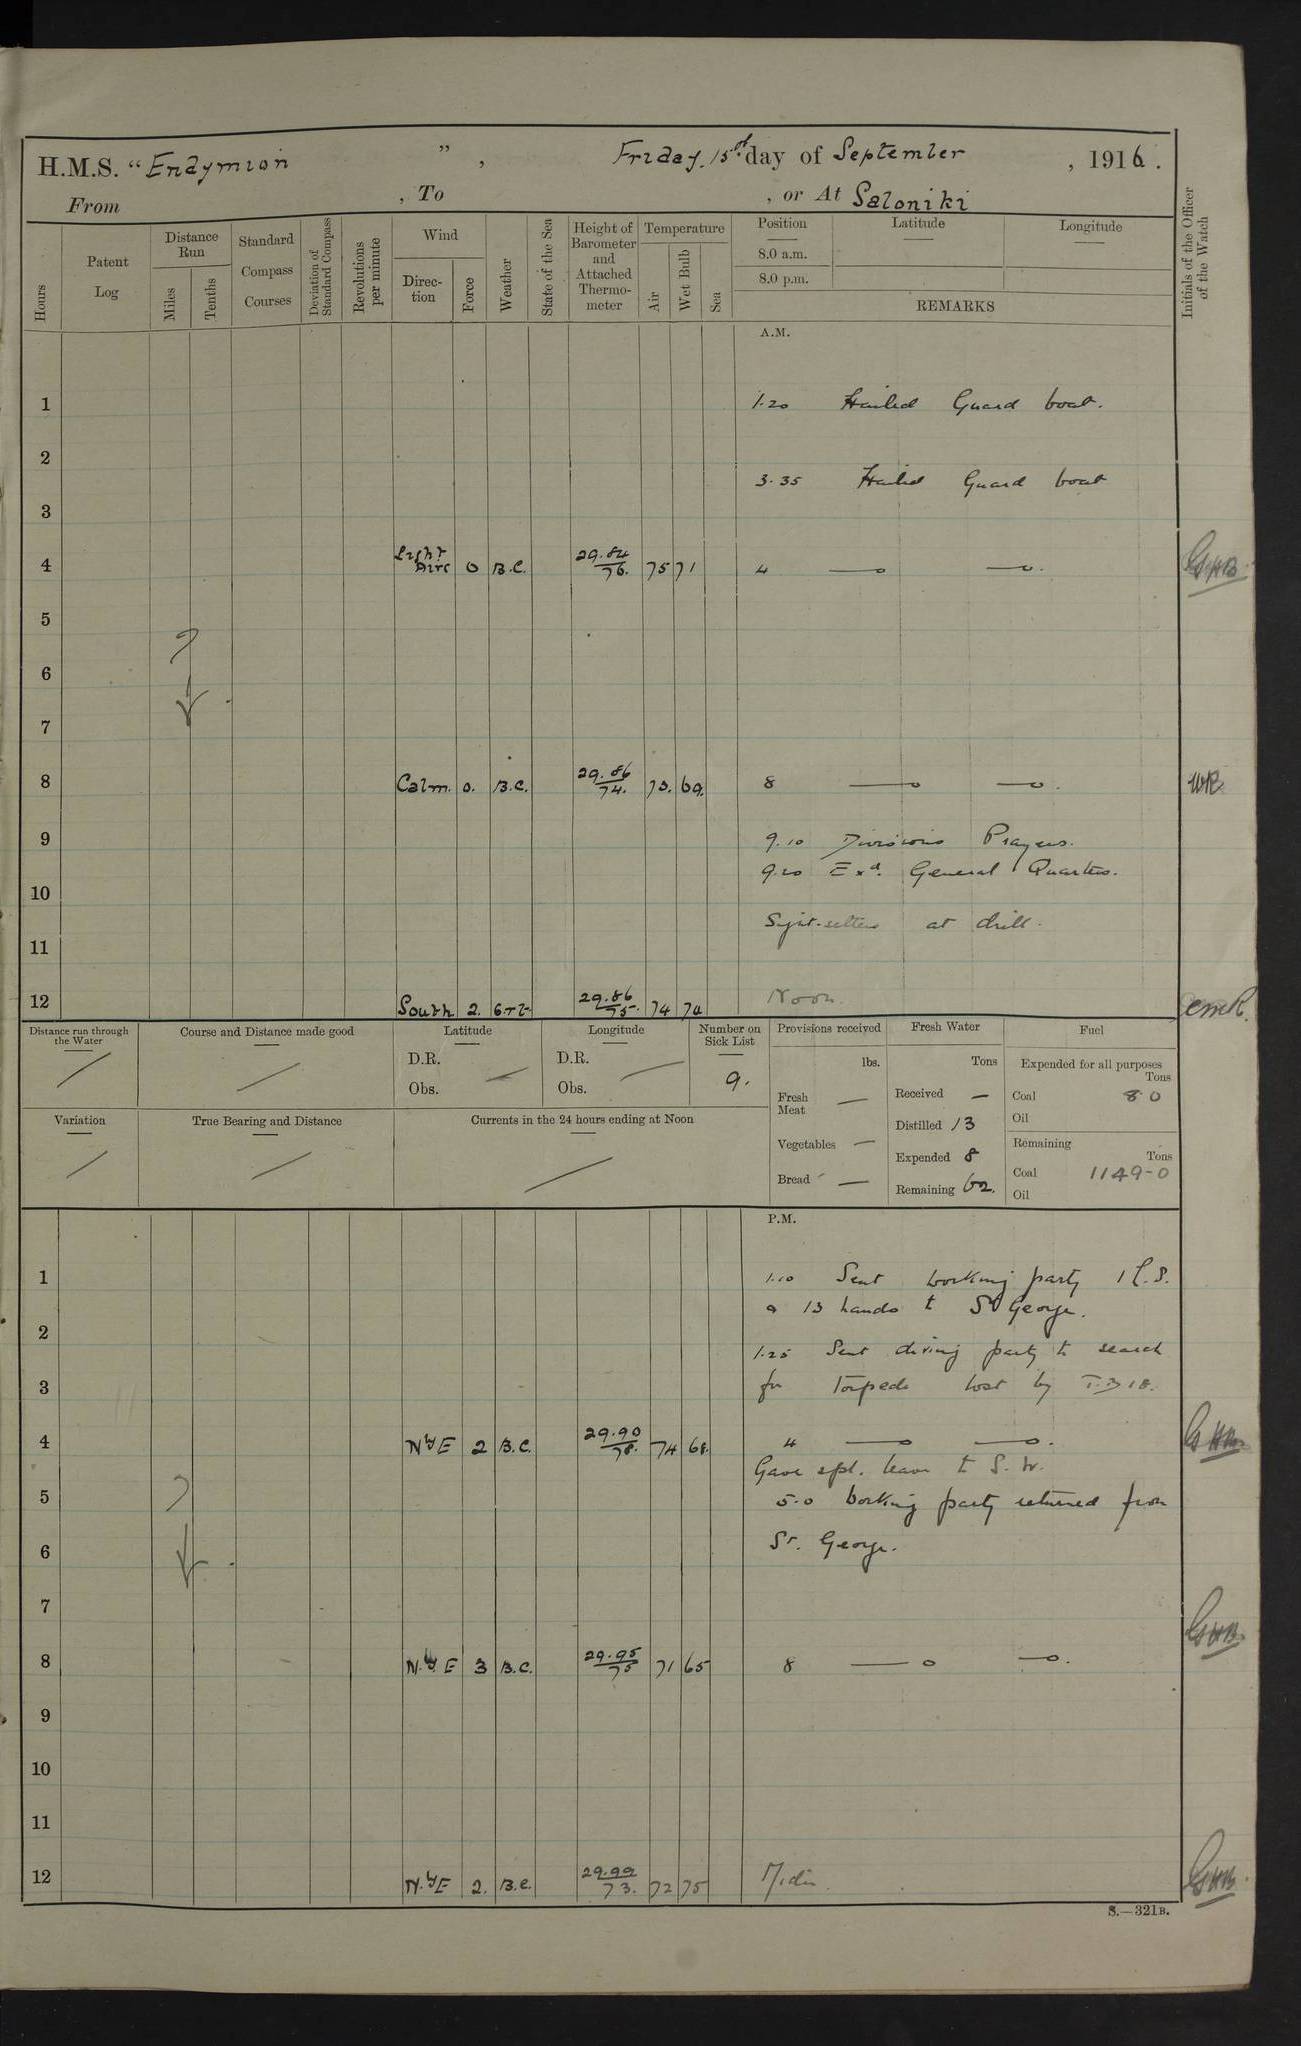 H.M.S. "Endymion ", Friday, 15th day of September, 1916.
From , To , or At Saloniki
Hours
Patent Log
Distance Run
Miles
Tenths
Standard Compass Courses
Deviation of Standard Compass
Revolutions per minute
Wind
Direction
Force
Weather
State of the Sea
Height of Barometer and Attached Thermometer
Temperature
Air
Wet Bulb
Sea
Position
8.0 a.m.
8.0 p.m.
Latitude
Longitude
REMARKS
Initials of the Officer of the Watch
A.M.
1 1.20 Hailed Guard boat.
2
3.35 Hailed Guard boat
3
4 Light Airs 0 B.C. 29.84 76. 75 71 4 GHB
5
6
7
8 Calm. 0. B.C. 29.86 74. 73. 69. 8 WR
9 9.10 Divisions Prayers.
9.20 Exd. General Quarters.
10
Sight-setters at drill.
11
12 South 2. 29.86 75. 74 74 Noon.
Distance run through the Water
Course and Distance made good
Latitude
D.R.
Obs.
Longitude
D.R.
Obs.
Number on Sick List
9.
Variation
True Bearing and Distance
Currents in the 24 hours ending at Noon
Provisions received
lbs.
Fresh Meat —
Vegetables —
Bread —
Fresh Water
Tons
Received —
Distilled 13
Expended 8
Remaining 62.
Fuel
Expended for all purposes
Tons
Coal 80
Oil
Remaining
Tons
Coal 1149-0
Oil
P.M.
1 1.10 Sent working party 1 P.O.
& 13 hands to St George.
2
1.25 Sent diving party to search
3 for torpedo lost by T.B 18.
4 N by E 2 B.C. 29.90 78. 74 68. 4 GHB
Gave spl. leave to
5 5.0 Working party returned from
6 St. George.
7
8 N. by E 3 B.C. 29.95 75 71 65 8 GHB
9
10
11
12 N. by E 2. B.C. 29.99 73. 72 75 Midn. GHB
S.—321B.